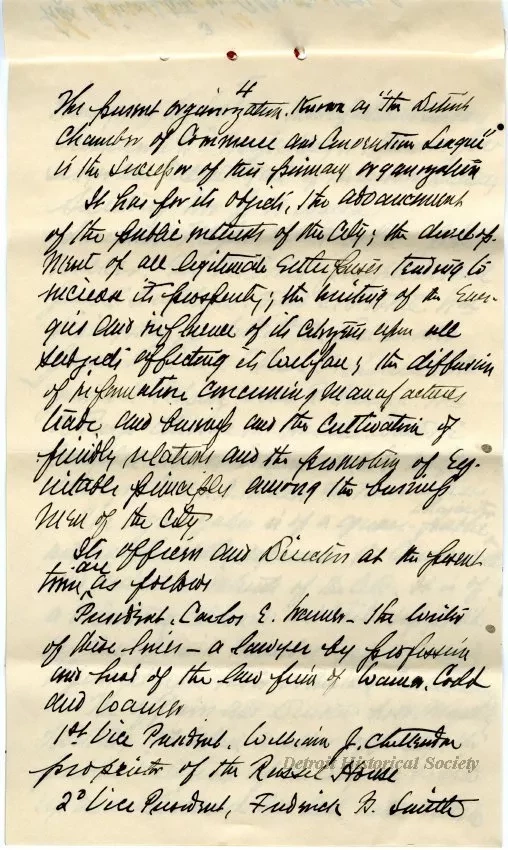 4
The present organization, known as "the Detroit
Chamber of Commerce and Convention League"
is the successor of this primary organization
It has for its objects, the advancement
of the public interests of the City; the develop-
ment of all legitimate Enterprises tending to
increase its prosperity; the uniting of the Ener-
gies and influence of its citizens upon all
subjects affecting its welfare; the diffusion
of information concerning manufactures
trade and business and the cultivation of
friendly relations and the promotion of Eq-
uitable principles among the business
men of the city
Its officers and Directors at the present
time are as follows
President, Carlos E. Warner - the writer
of these lines - a lawyer by profession
and head of the law firm of Warner, Codd
and Warner
1st Vice President, William J. Chittenden
proprietor of the Russel House
Detroit Historical Society
2d Vice President, Frederick B. Smith